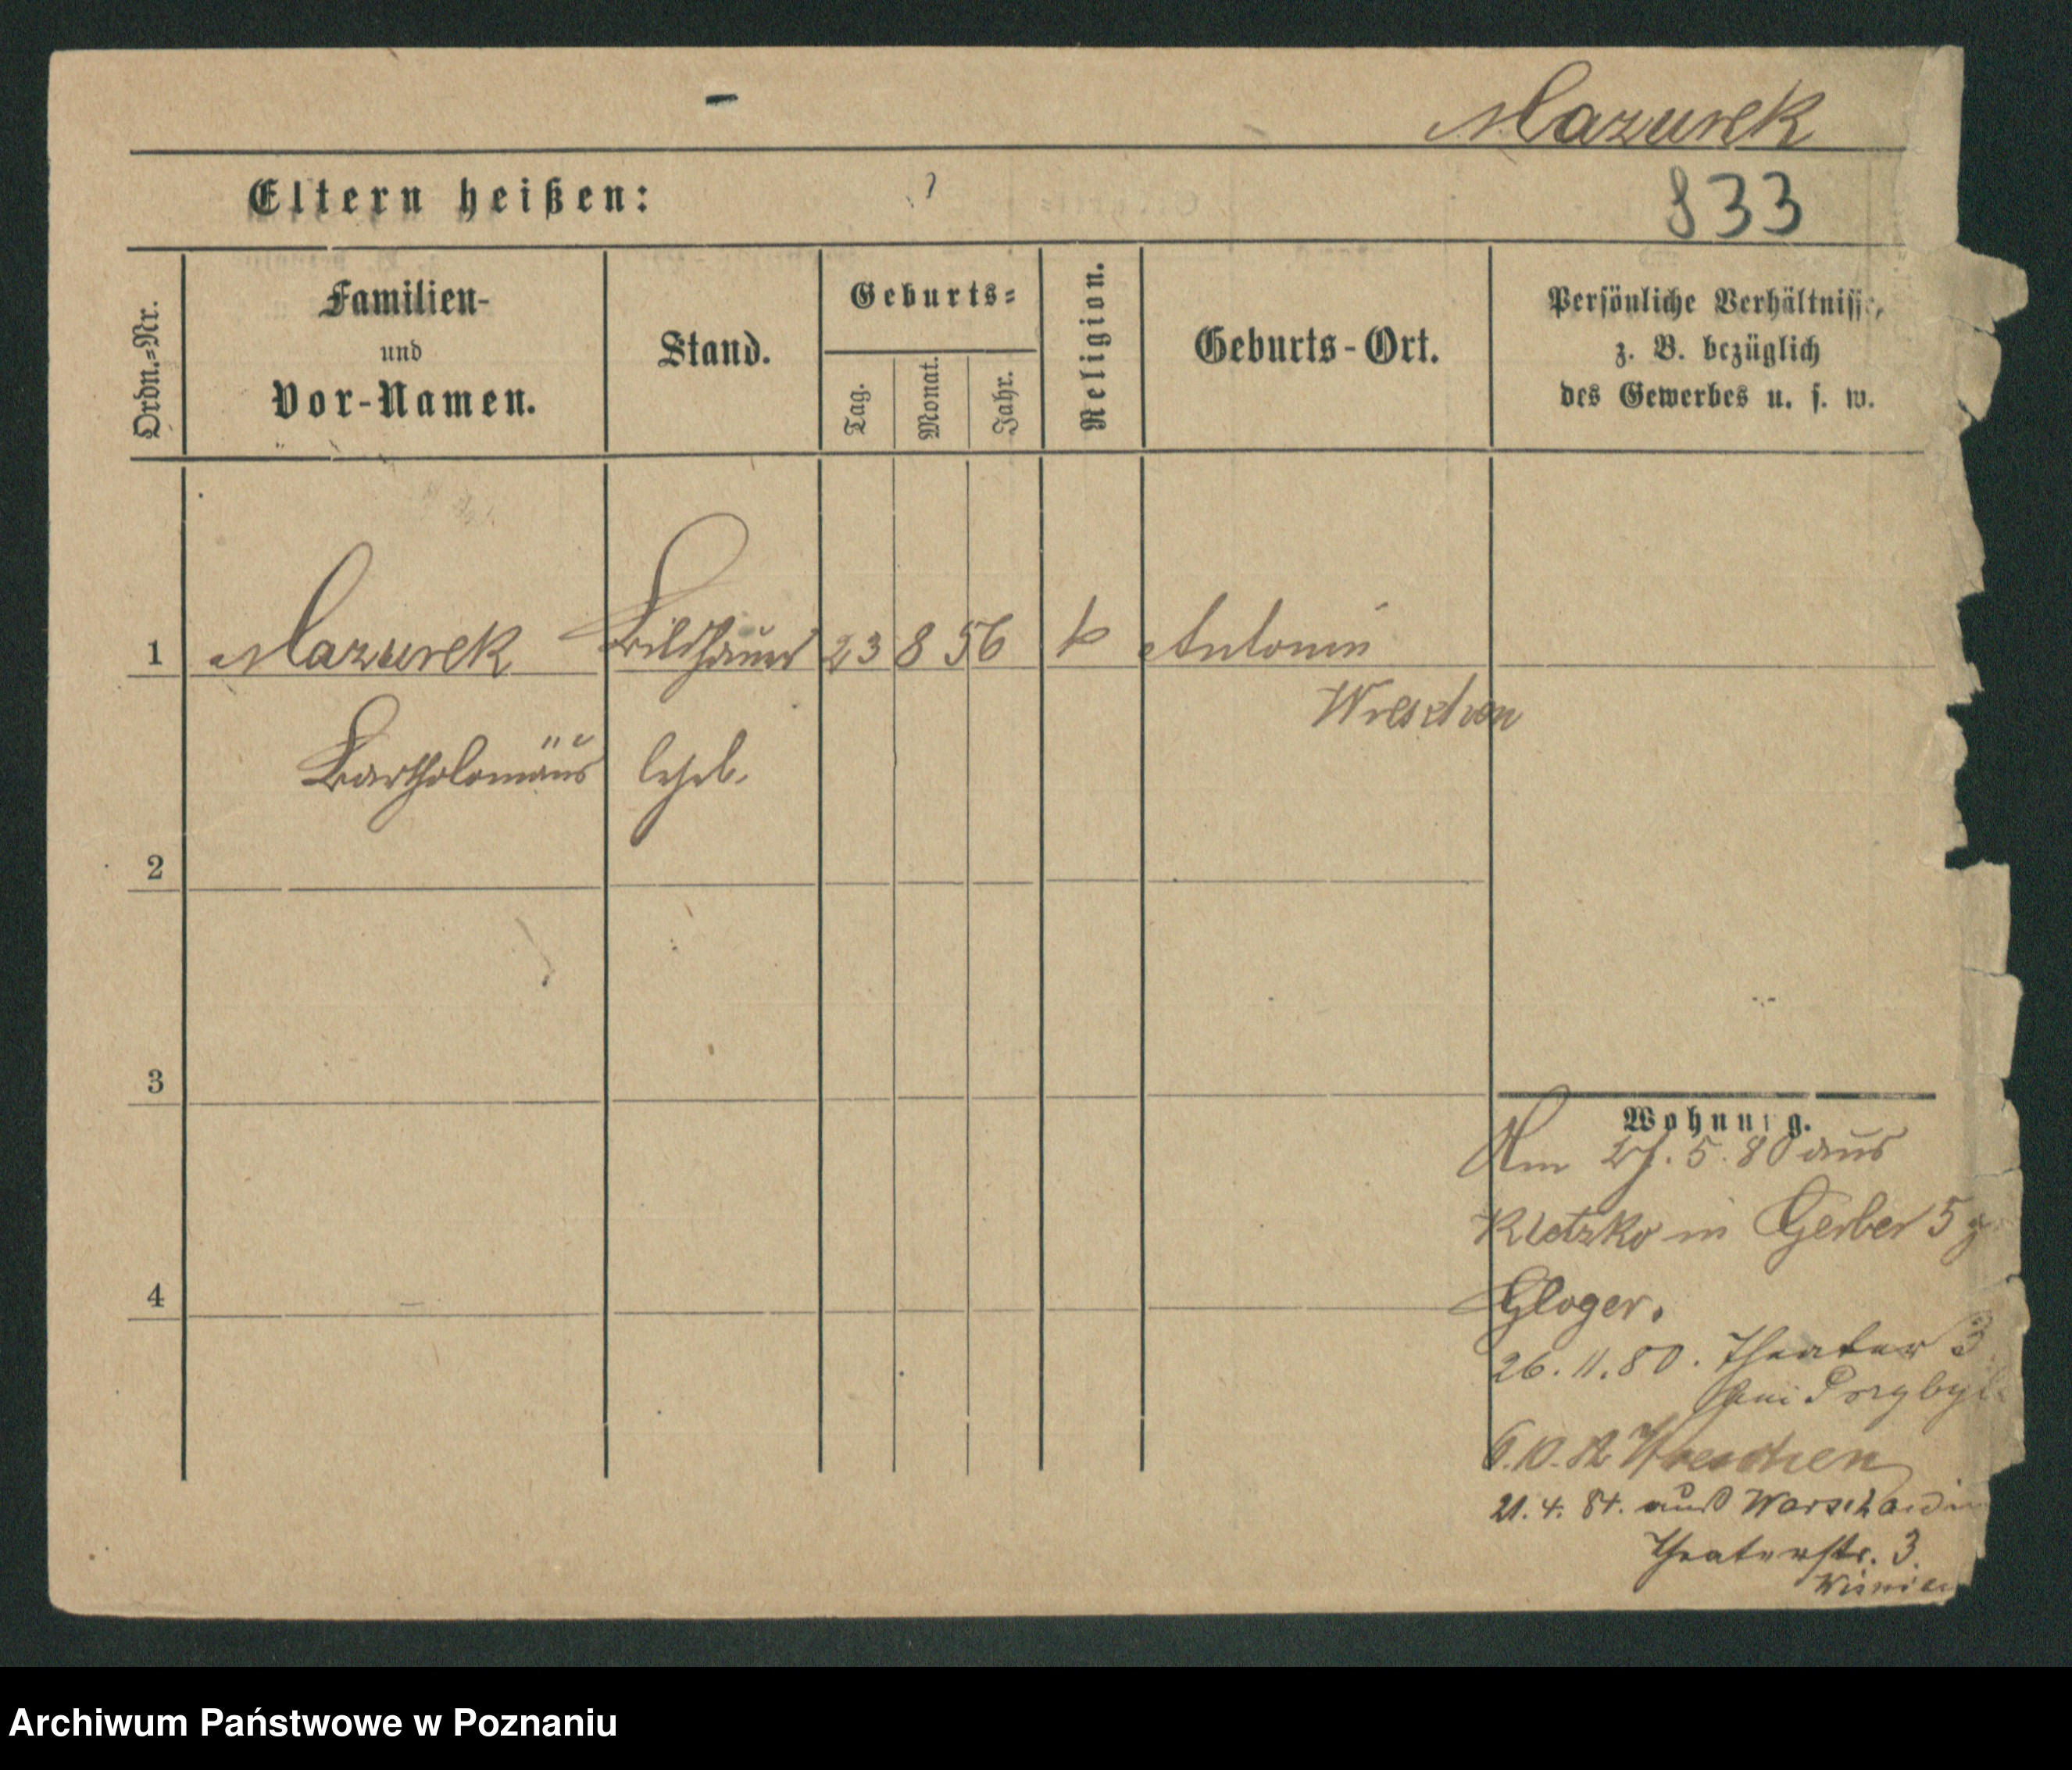 Mazurek
Eltern heißen: ?
833
Ordn.=Nr.
Familien-
und
Vor-Namen.
Stand.
Geburts=
Tag.
Monat.
Jahr.
Religion.
Geburts-Ort.
Persönliche Verhältnisse,
z. B. bezüglich
des Gewerbes u. s. w.
1 Mazurek Bildhauer 23 8 56 k Antonin
Wreschen
Bartholomäus
2
3
4
Wohnung.
Am 27. 5. 80 aus
Kletzko in Gerber 5
Gloger.
26. 11. 80. Theater 3
bei
6. 10. 82 Wreschen
21. 4. 84. aus Warschau in
Theaterstr. 3.
Archiwum Państwowe w Poznaniu